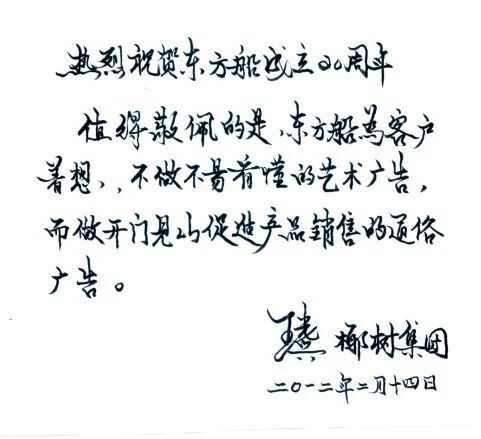 热烈祝贺东方船成立20周年
值得敬佩的是,东方船為客户
着想,,不做不易看懂的艺术广告,
而做开门见山促进产品销售的通俗
广告。
椰树集团
二〇一二年二月十四日